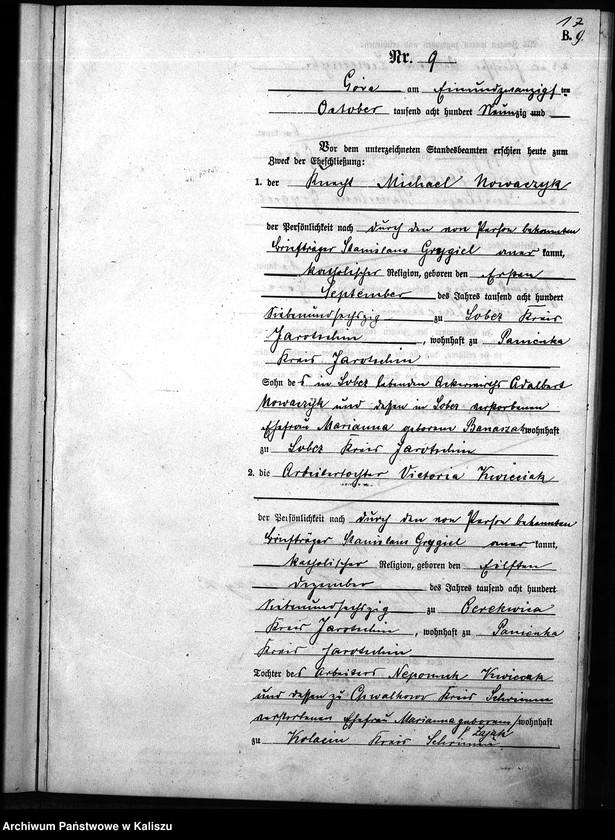 17
B. 9.
Nr. 9
Góra am Einundzwanzigsten
October tausend acht hundert Neunzig und
Vor dem unterzeichneten Standesbeamten erschien heute zum
Zweck der Eheschließung:
1. der Knecht Michael Nowaczyk
der Persönlichkeit nach durch den von Person bekannten
Briefträger Stanislaus Grygiel aner kannt,
katholischer Religion, geboren den Ersten
September des Jahres tausend acht hundert
Siebenundsechszig zu Lobez Kreis
Jarotschin, wohnhaft zu Panienka
Kreis Jarotschin
Sohn des in Lobez lebenden Ackerwirths Adalbert
Nowaczyk und dessen in Lobez verstorbenen
Ehefrau Marianna geborene Banaszak wohnhaft
zu Lobez Kreis Jarotschin
2. die Arbeitertochter Victoria Kwieciak
der Persönlichkeit nach durch den von Person bekannten
Briefträger Stanislaus Grygiel aner kannt,
katholischer Religion, geboren den Eilften
Dezember des Jahres tausend acht hundert
Siebenundsechszig zu Cerekwica
Kreis Jarotschin, wohnhaft zu Panienka
Kreis Jarotschin
Tochter des Arbeiters Nepomuk Kwieciak
und dessen zu Chwalkowo Kreis Schrimm
verstorbenen Ehefrau Marianna geborene wohnhaft
zu Kolacin Kreis Schrimm
Archiwum Państwowe w Kaliszu